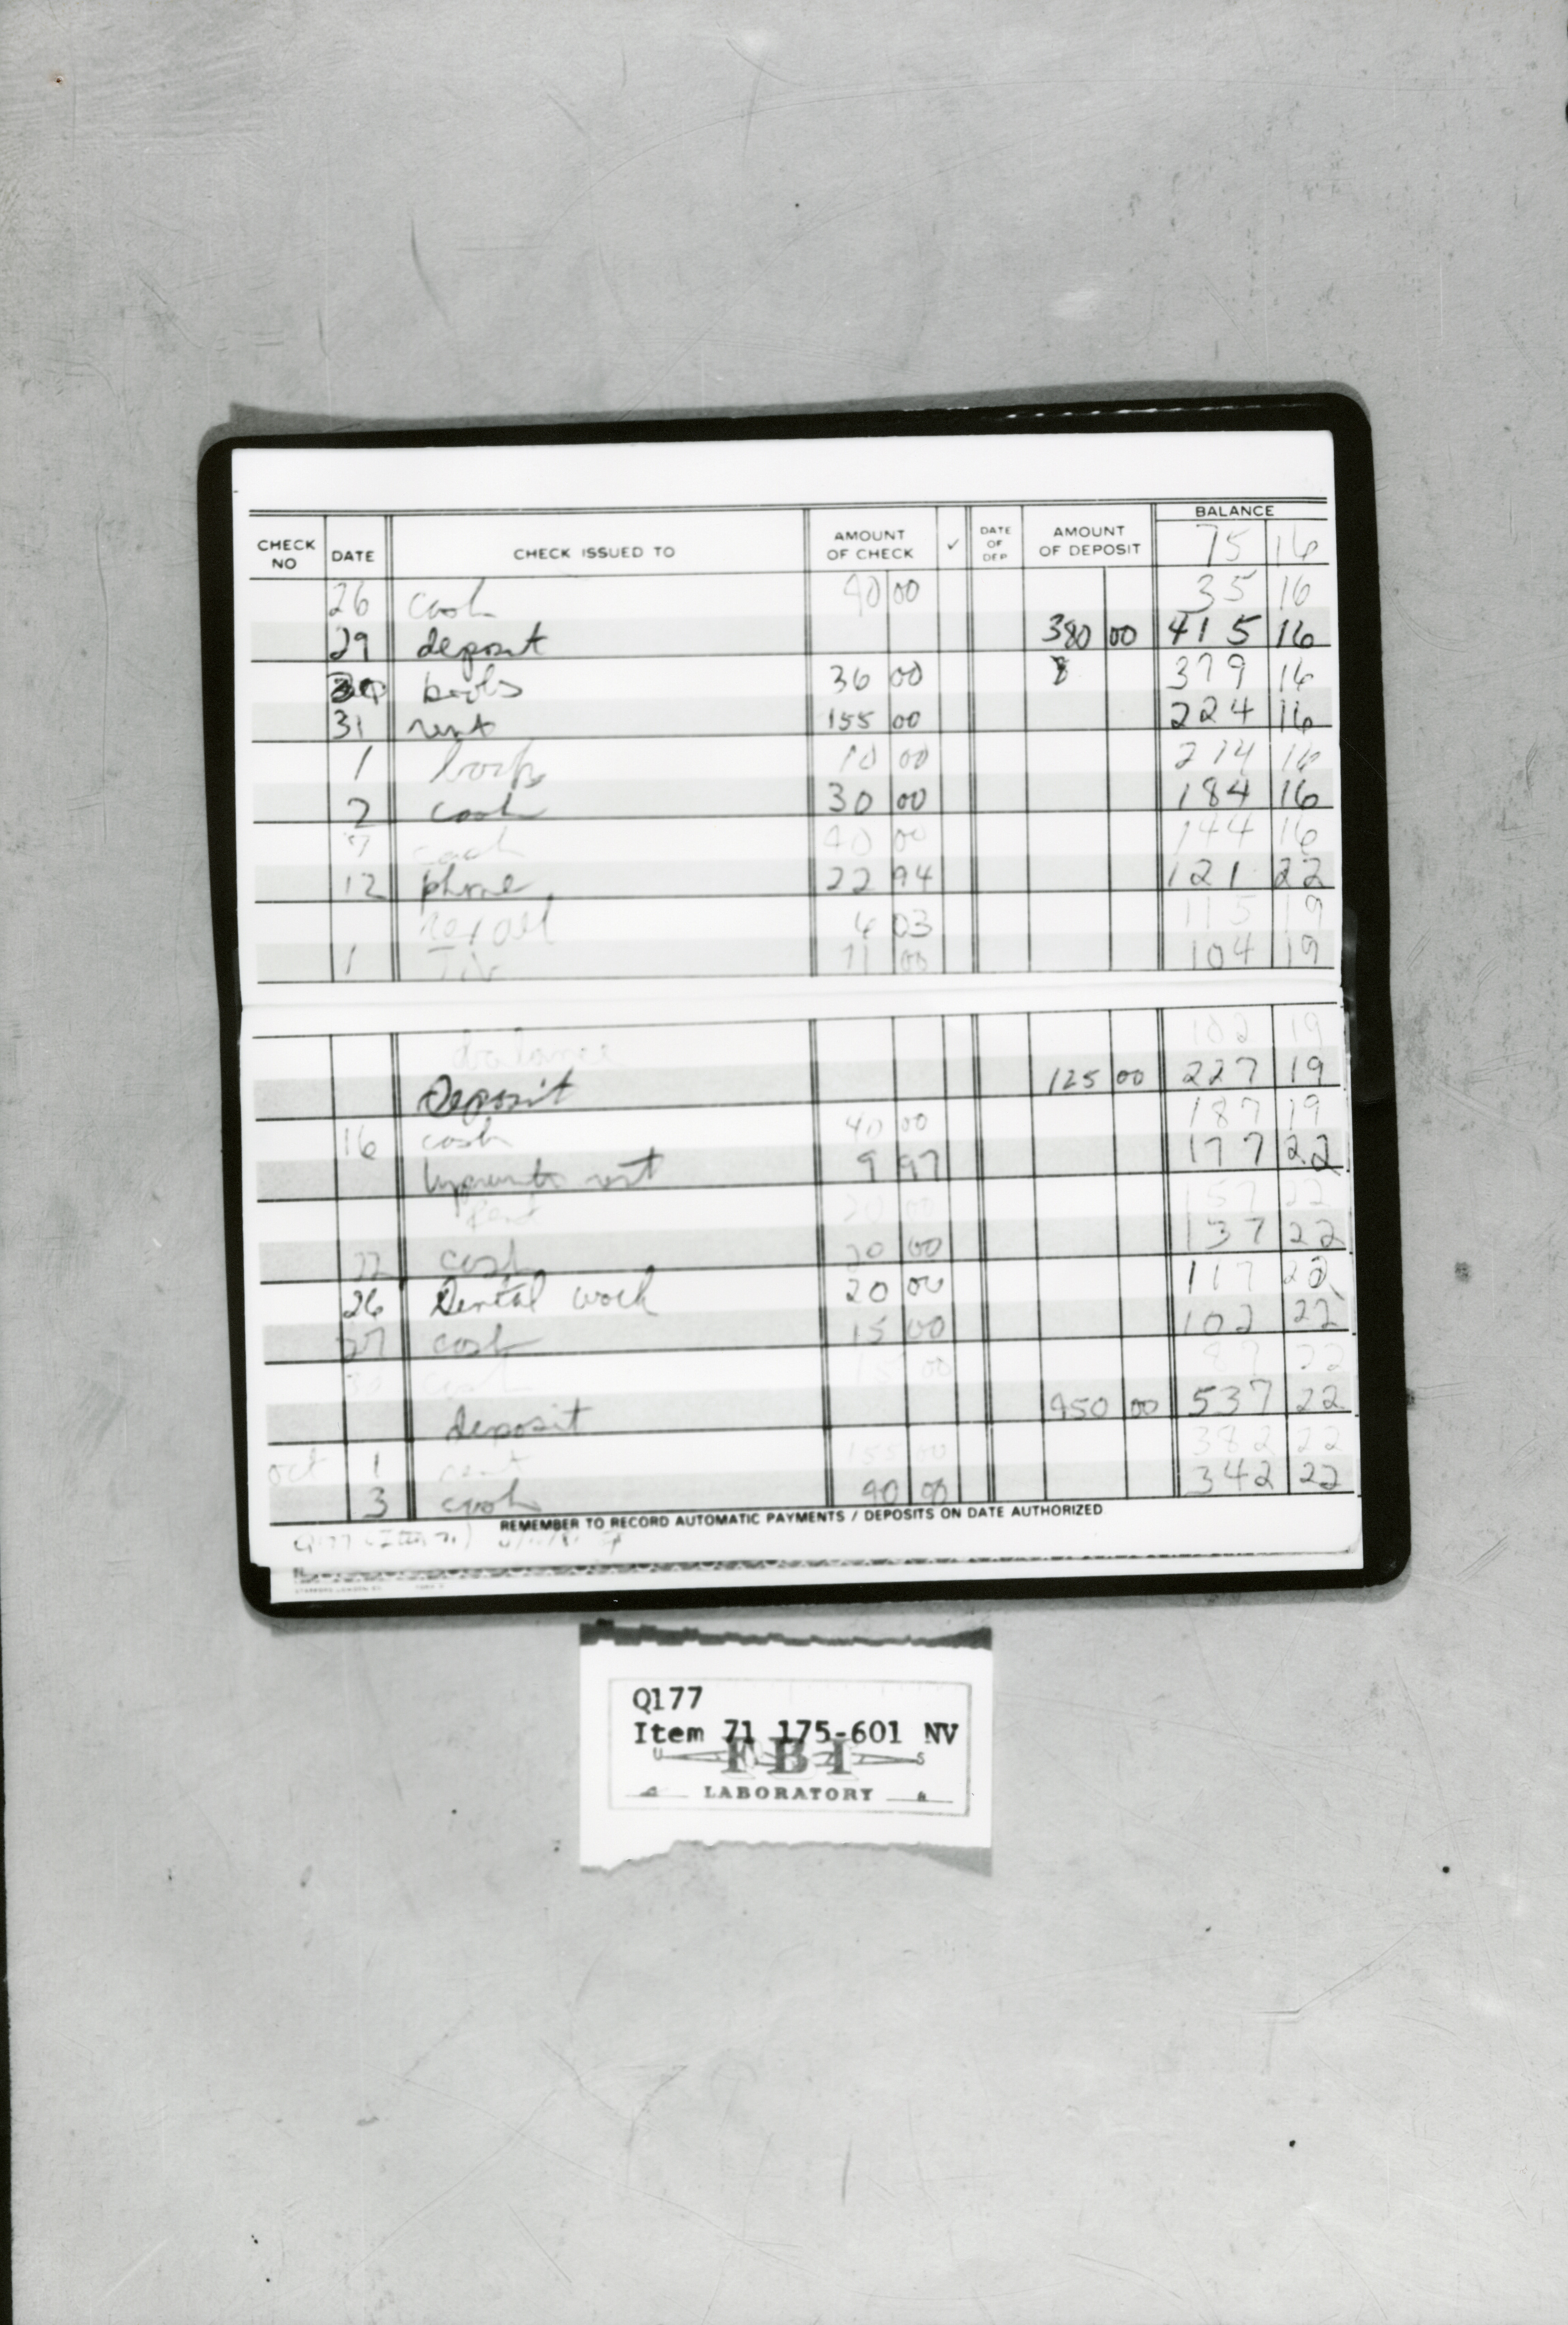 BALANCE
CHECK NO DATE CHECK ISSUED TO AMOUNT OF CHECK ✓ DATE OF DEP AMOUNT OF DEPOSIT 75 16
26 cash 40 00 35 16
29 deposit 380 00 415 16
books 36 00 379 16
31 rent 155 00 224 16
1 books 10 00 214 16
2 cash 30 00 184 16
7 cash 40 00 144 16
12 phone 22 94 121 22
rexall 6 03 115 19
1 11 00 104 19
balance 102 19
Deposit 125 00 227 19
16 cash 40 00 187 19
9 97 177 22
20 00 157 22
22 cash 20 00 137 22
26 Dental work 20 00 117 22
27 cash 15 00 102 22
cash 15 00 87 22
deposit 450 00 537 22
oct 1 rent 155 00 382 22
3 cash 40 00 342 22
REMEMBER TO RECORD AUTOMATIC PAYMENTS / DEPOSITS ON DATE AUTHORIZED
Q177
Q177
Item 71 175-601 NV
U FBI S
LABORATORY